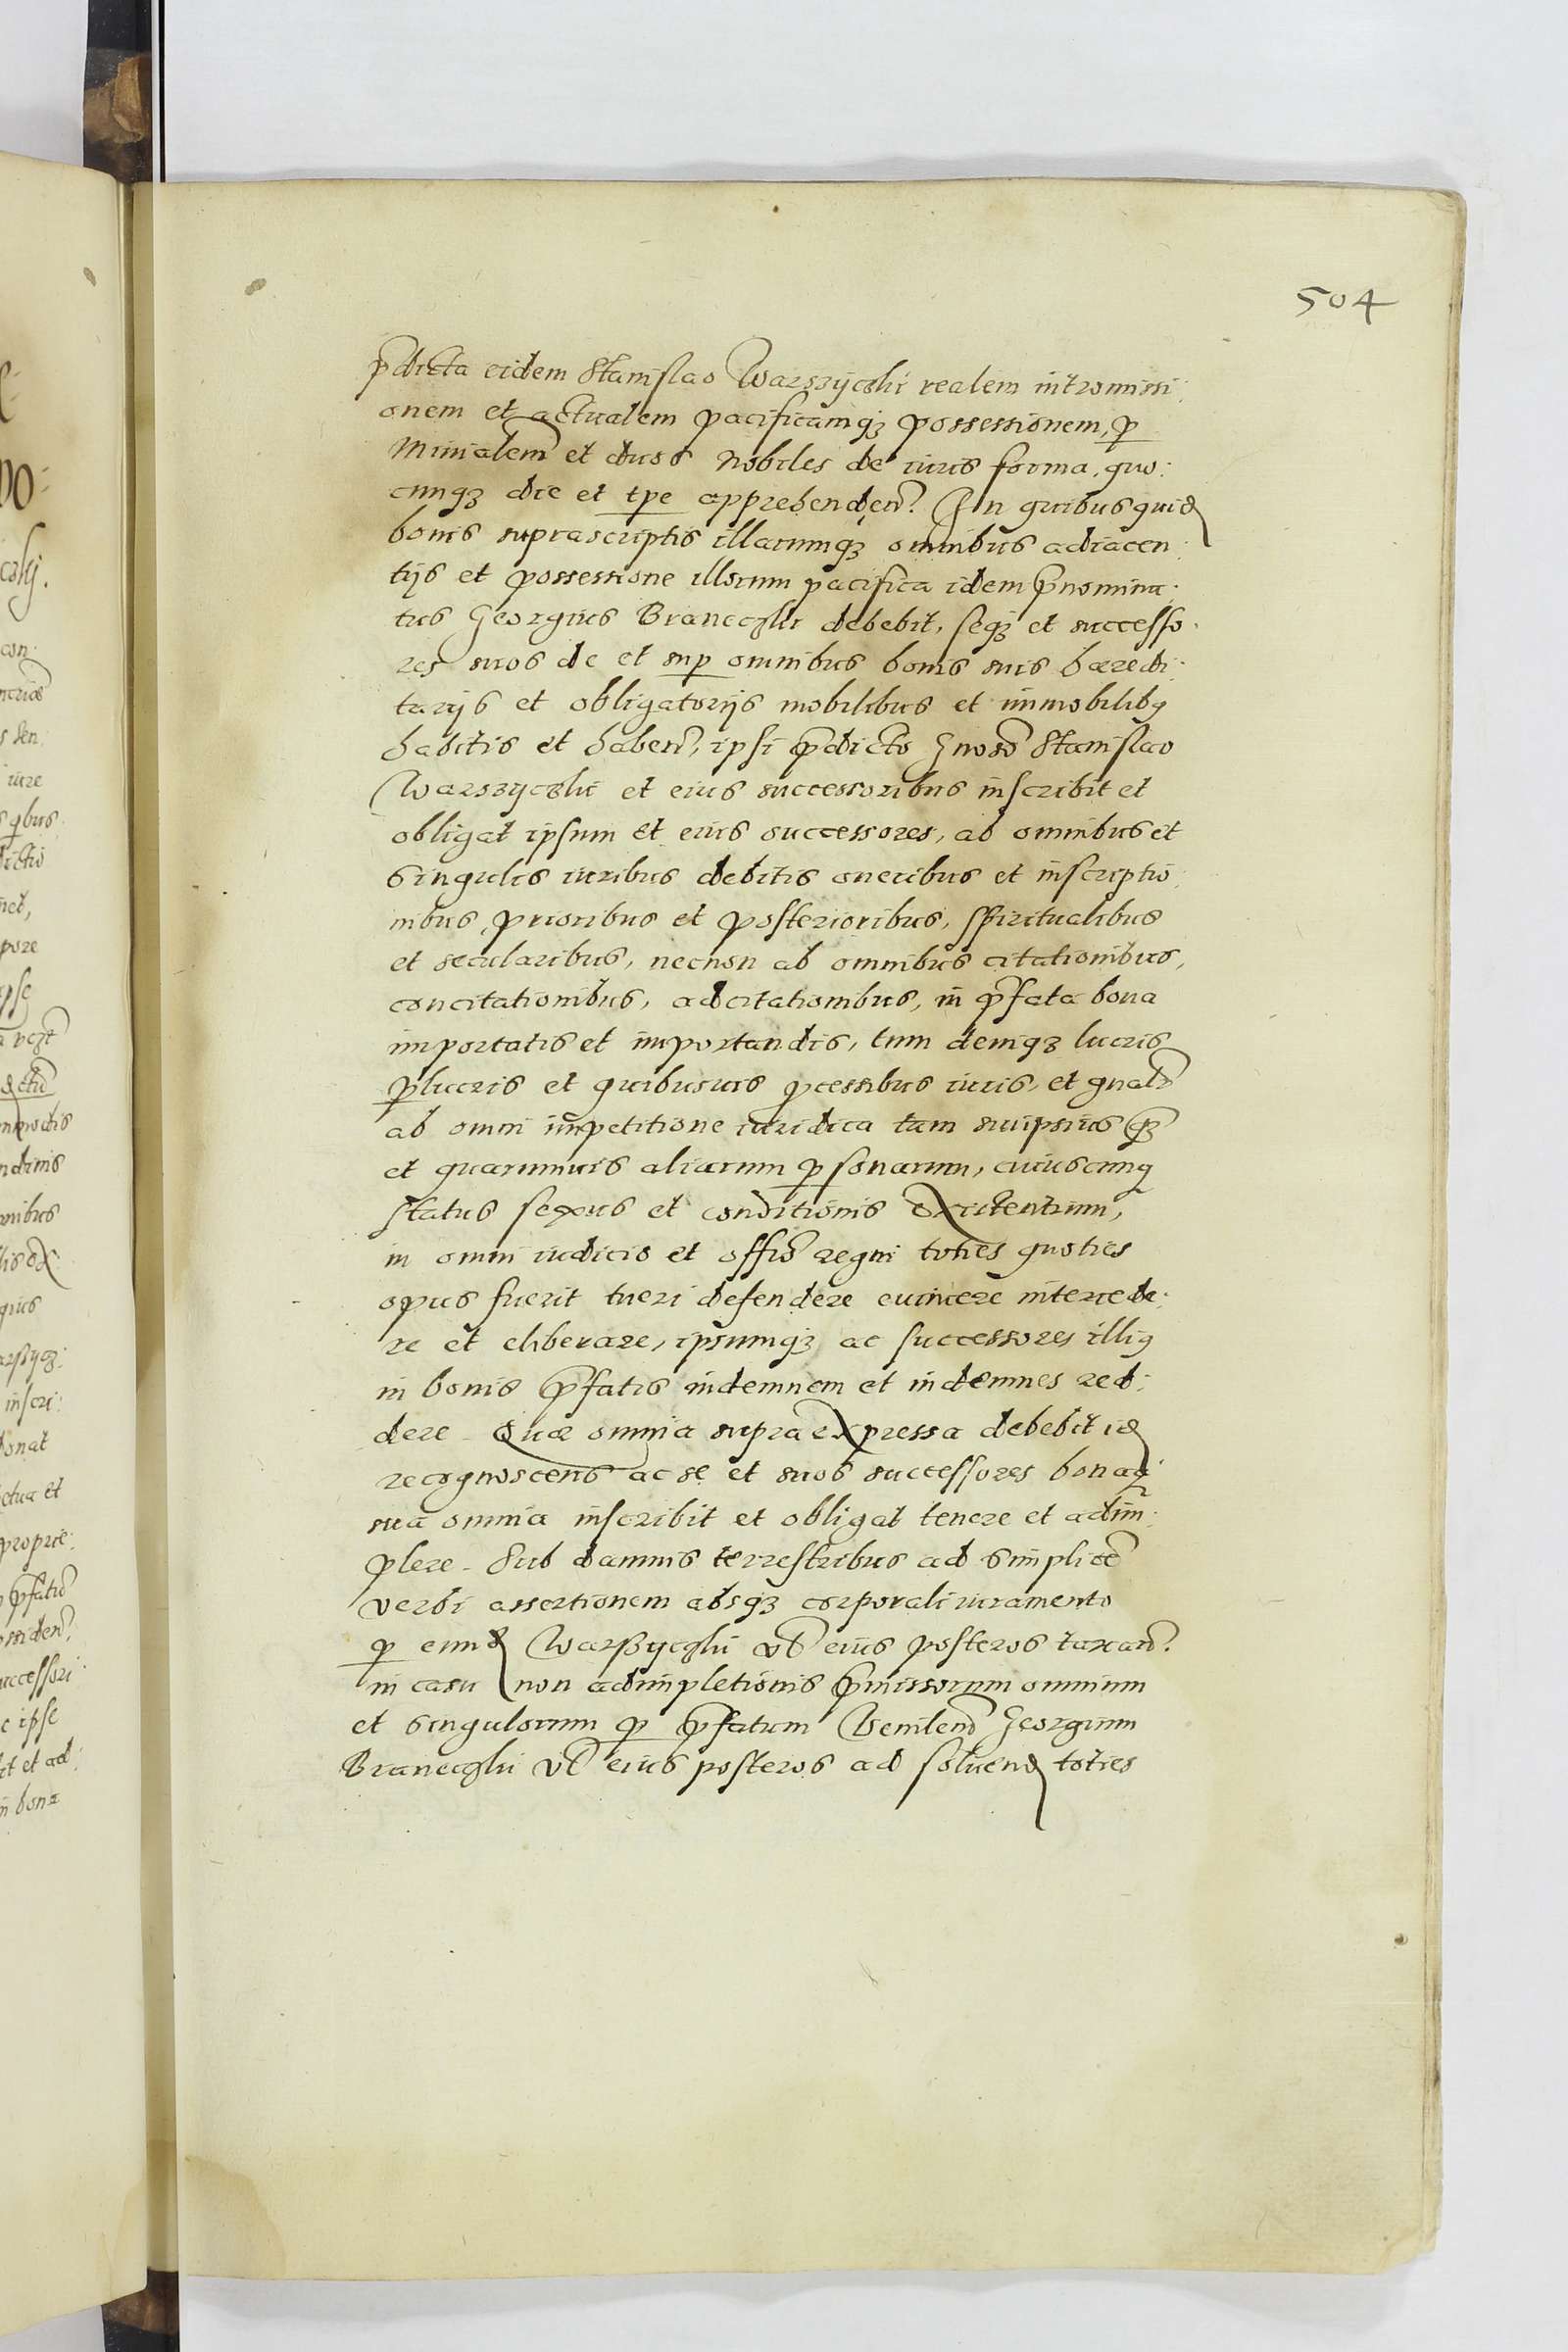 504
p̄dicta eidem Stanislao Warszyczki realem intromissi:
onem et actualem pacificamqꝫ possessionem, ꝑ
Minialem̄ et duos Nobiles de iuris forma, quo:
cunqꝫ die et tp̄e apprehenden̄. In quibus quid̄
bonis suprascriptis illarumqꝫ omnibus adiacen:
tijs et possessione illorum pacifica idem p̄nomina:
tus Georgius Braneczki debebit, seqꝫ et successo:
res suos de et sup̱ omnibus bonis suis hæredi:
tarijs et obligatorijs mobilibus et immobilibꝯ
habitis et haben̄, ipsi p̄dicto Gnoso Stanislao
Warszyczki et eius successoribus inscribit et
obligat ipsum et eius successores, ab omnibus et
singulis iuribus debitis oneribus et inscriptio:
nibus, prioribus et posterioribus, spiritualibus
et secularibus, necnon ab omnibus citationibus,
concitationibus, adcitationibus, in p̄fata bona
importatis et importandis, tum deniqꝫ lucris
ꝑlucris et quibusuis ꝓcessibus iuris, et gnalr̄
ab omni impetitione iuridica tam suiipsius qꝫ̄
et quarumuis aliarum ꝑsonarum, cuiuscunqꝫ
status sexus et conditionis existentium,
in omni iudicio et offio regni toties quoties
opus fuerit tueri defendere euincere intercede:
re et eliberare, ipsumqꝫ ac successores illiꝯ
in bonis p̄fatis indemnem et indemnes red:
dere. Quæ omnia supra expressa debebit id̄
recognoscens ac se et suos successores bonaqꝫ
sua omnia inscribit et obligat tenere et adim:
plere. Sub damnis terrestribus ad simplicē
verbi assertionem absqꝫ corporali iuramento
ꝑ eund̄ Warßyczki vl̄ eius posteros taxan̄.
in casu non adimpletionis p̄missorum omnium
et singulorum ꝑ p̄fatum Venlen̄ Georgium
Braneczki vl̄ eius posteros ad soluend̄ toties